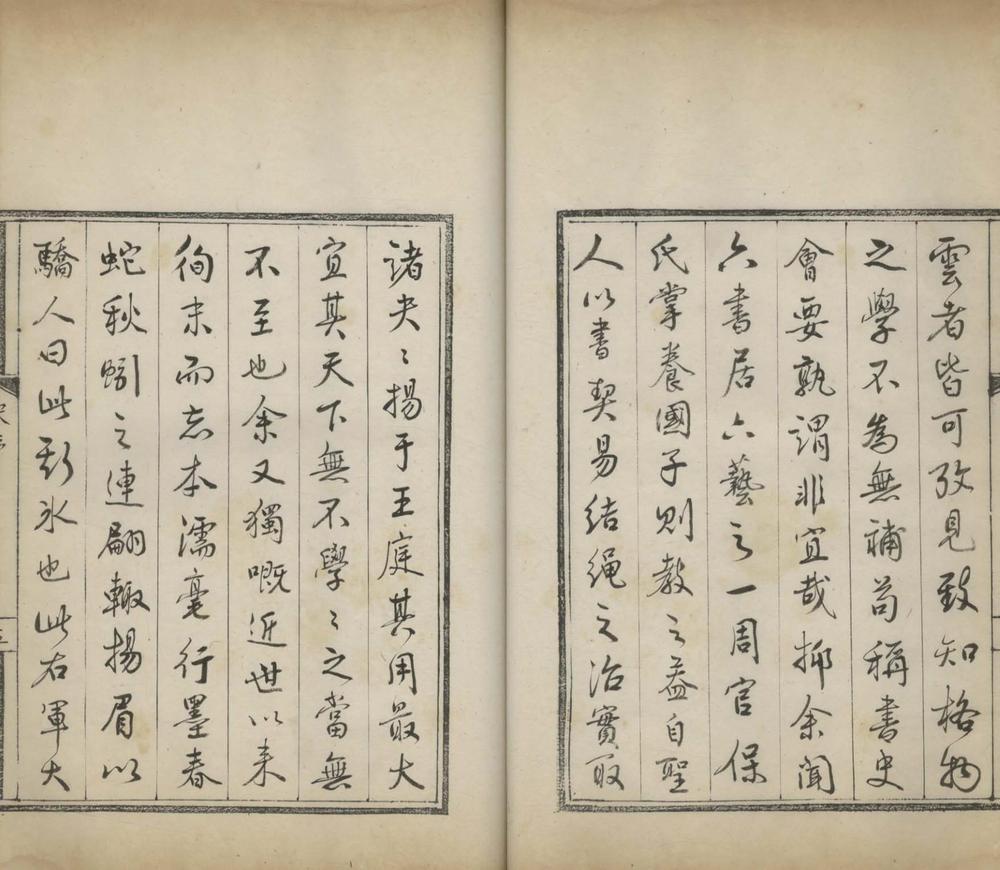 雲者皆可攷見致知格物
之學不為無補苟稱書史
會要孰謂非宜哉抑余聞
六書居六藝之一周官保
氏掌養國子則教之蓋自聖
人以書契易結繩之治實取
諸夬〻揚于王庭其用最大
宜其天下無不學〻之當無
不至也余又獨嘅近世以来
徇末而忘本濡毫行墨春
蛇秋蚓之連翩輙揚眉以
驕人曰此斯氷也此右軍大